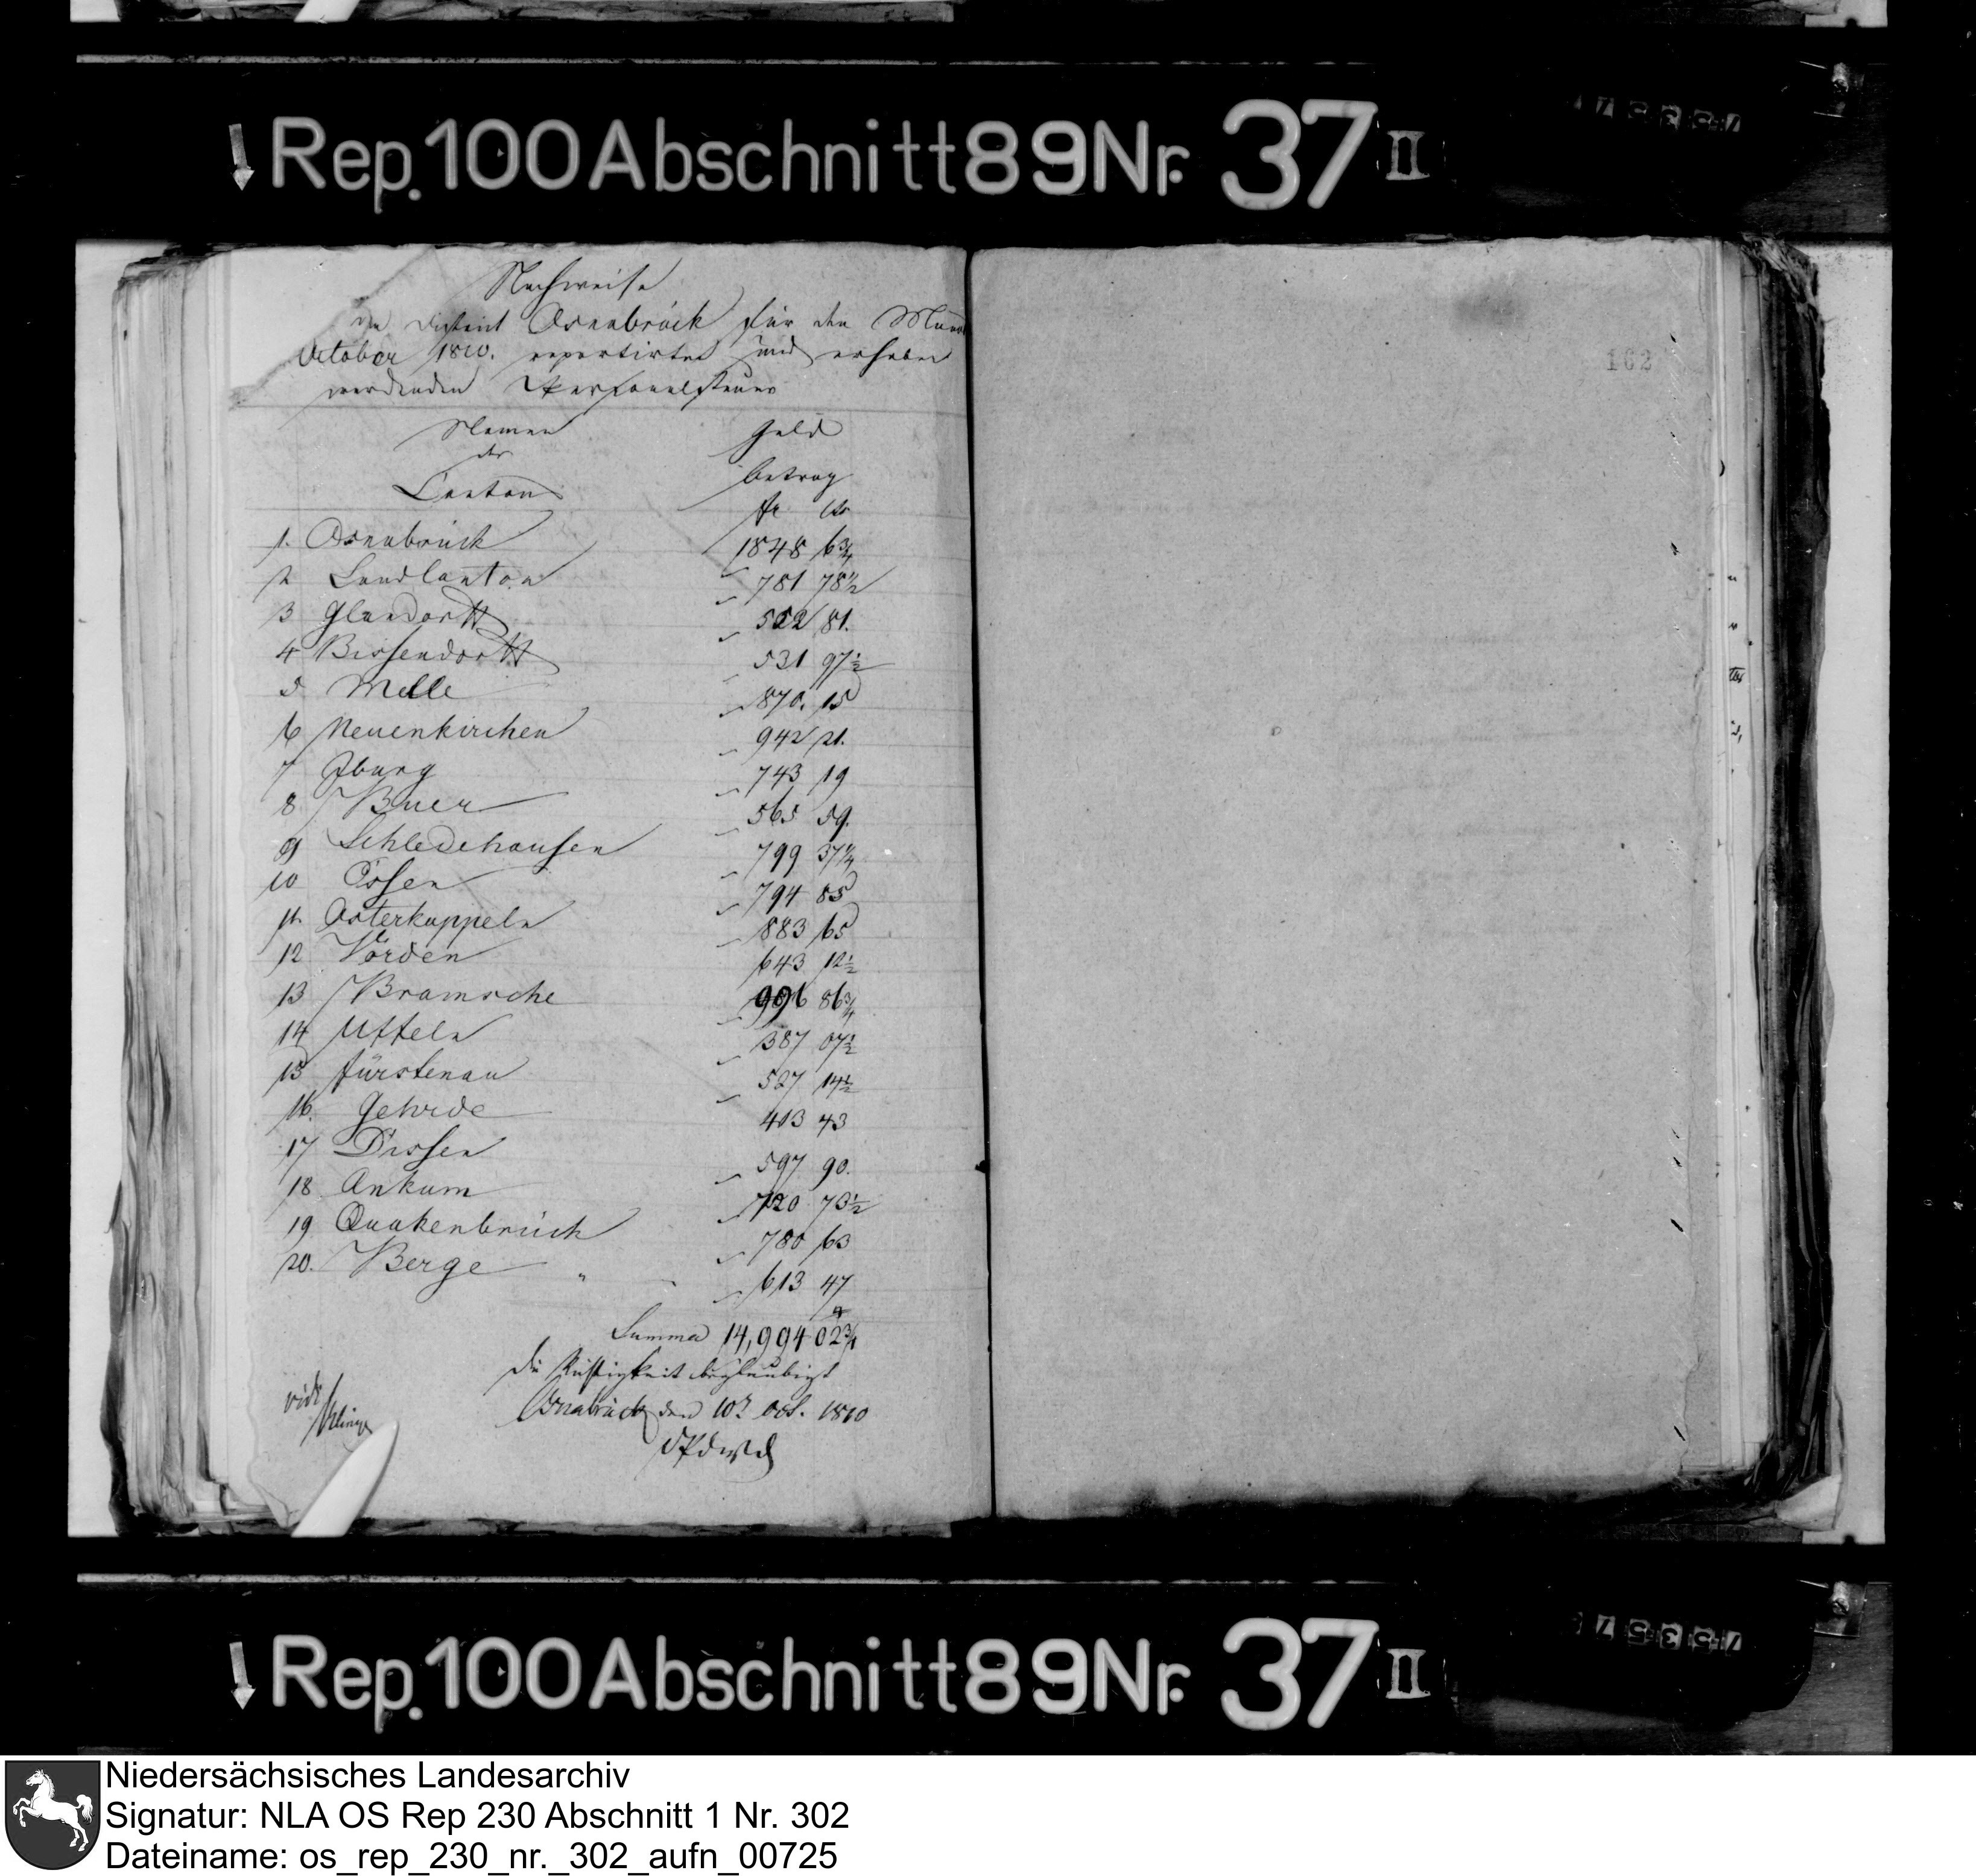 Rep. 100 Abschnitt 89 Nr. 37 II
Nachweise
District Osnabrück für den
October 1810. repartirten und erhoben
werdenden Personalsteuer
Namen
der
Cantons
Geld
betrag
fr cs
1. Osnabrück 1848 6¾
2 Landcanton 781 78½
3 Glandorff 81.
4 Bissendorff 531 97½
5 Melle 870. 15
6 Neuenkirchen 942 21.
7 Iburg 743 19
8 Buer 565 59.
9 Schledehausen 799 37¼
10 Essen 794 85
11. Osterkappeln 883 65
12 Vörden 643 12½
13 Bramsche 996 86¾
14 Uffeln 387 07½
15 Fürstenau 527 14½
16. Gehrde 413 43
17 Dissen 597 90.
18 Ankum 720 73½
19 Quakenbrück 780 63
20. Berge 613 47
Summa 14,994 02¾
die Richtigkeit beglaubigt
Osnabrück den 10t Oct. 1810
vidi
162
Rep. 100 Abschnitt 89 Nr. 37 II
Niedersächsisches Landesarchiv
Signatur: NLA OS Rep 230 Abschnitt 1 Nr. 302
Dateiname: os_rep_230_nr._302_aufn_00725